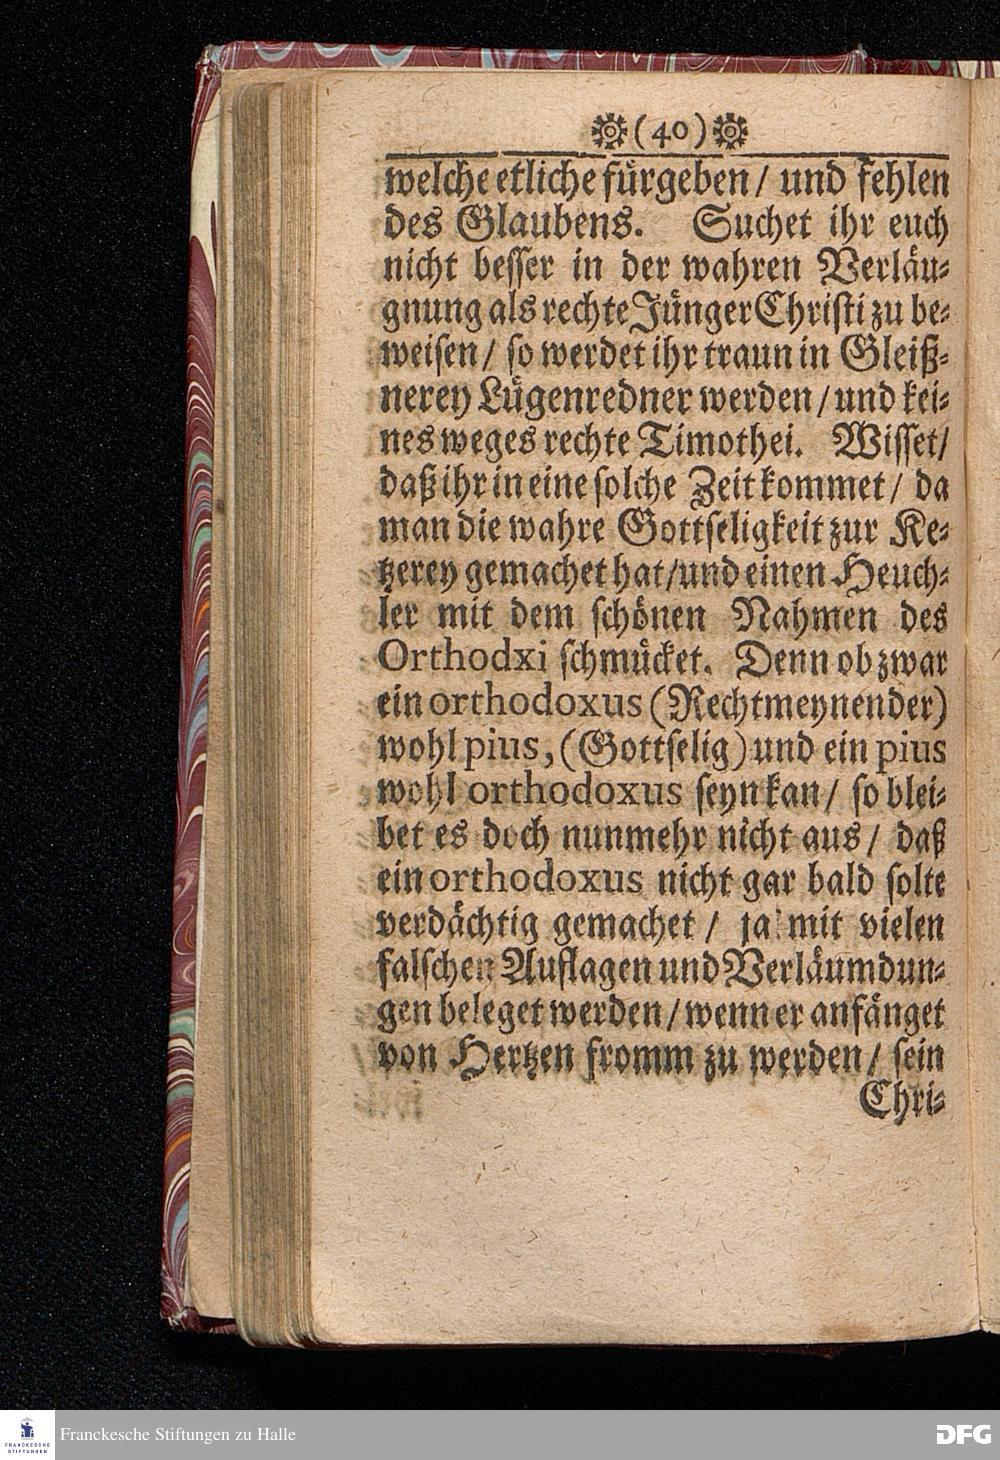 (40)
welche etliche fürgeben / und fehlen
des Glaubens. Suchet ihr euch
nicht besser in der wahren Verläu-
gnung als rechte Jünger Christi zu be-
weisen / so werdet ihr traun in Gleiß-
nerey Lügenredner werden / und kei-
nes weges rechte Timothei. Wisset /
daß ihr in eine solche Zeit kommet / da
man die wahre Gottseligkeit zur Ke-
tzerey gemachet hat / und einen Heuch-
ler mit dem schönen Nahmen des
Orthodxi schmücket. Denn ob zwar
ein orthodoxus (Rechtmeynender)
wohl pius, (Gottselig) und ein pius
wohl orthodoxus seyn kan / so blei-
bet es doch nunmehr nicht aus / daß
ein orthodoxus nicht gar bald solte
verdächtig gemachet / ja mit vielen
falschen Auflagen und Verläumdun-
gen beleget werden / wenn er anfänget
von Hertzen fromm zu werden / sein
Chri-
FRANCKESCHE STIFTUNGEN
Franckesche Stiftungen zu Halle
DFG